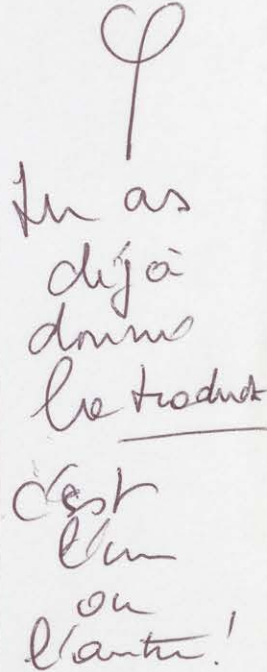 φ
tu as
déjà
donné
la traduct
c'est
l'un
ou
l'autre!